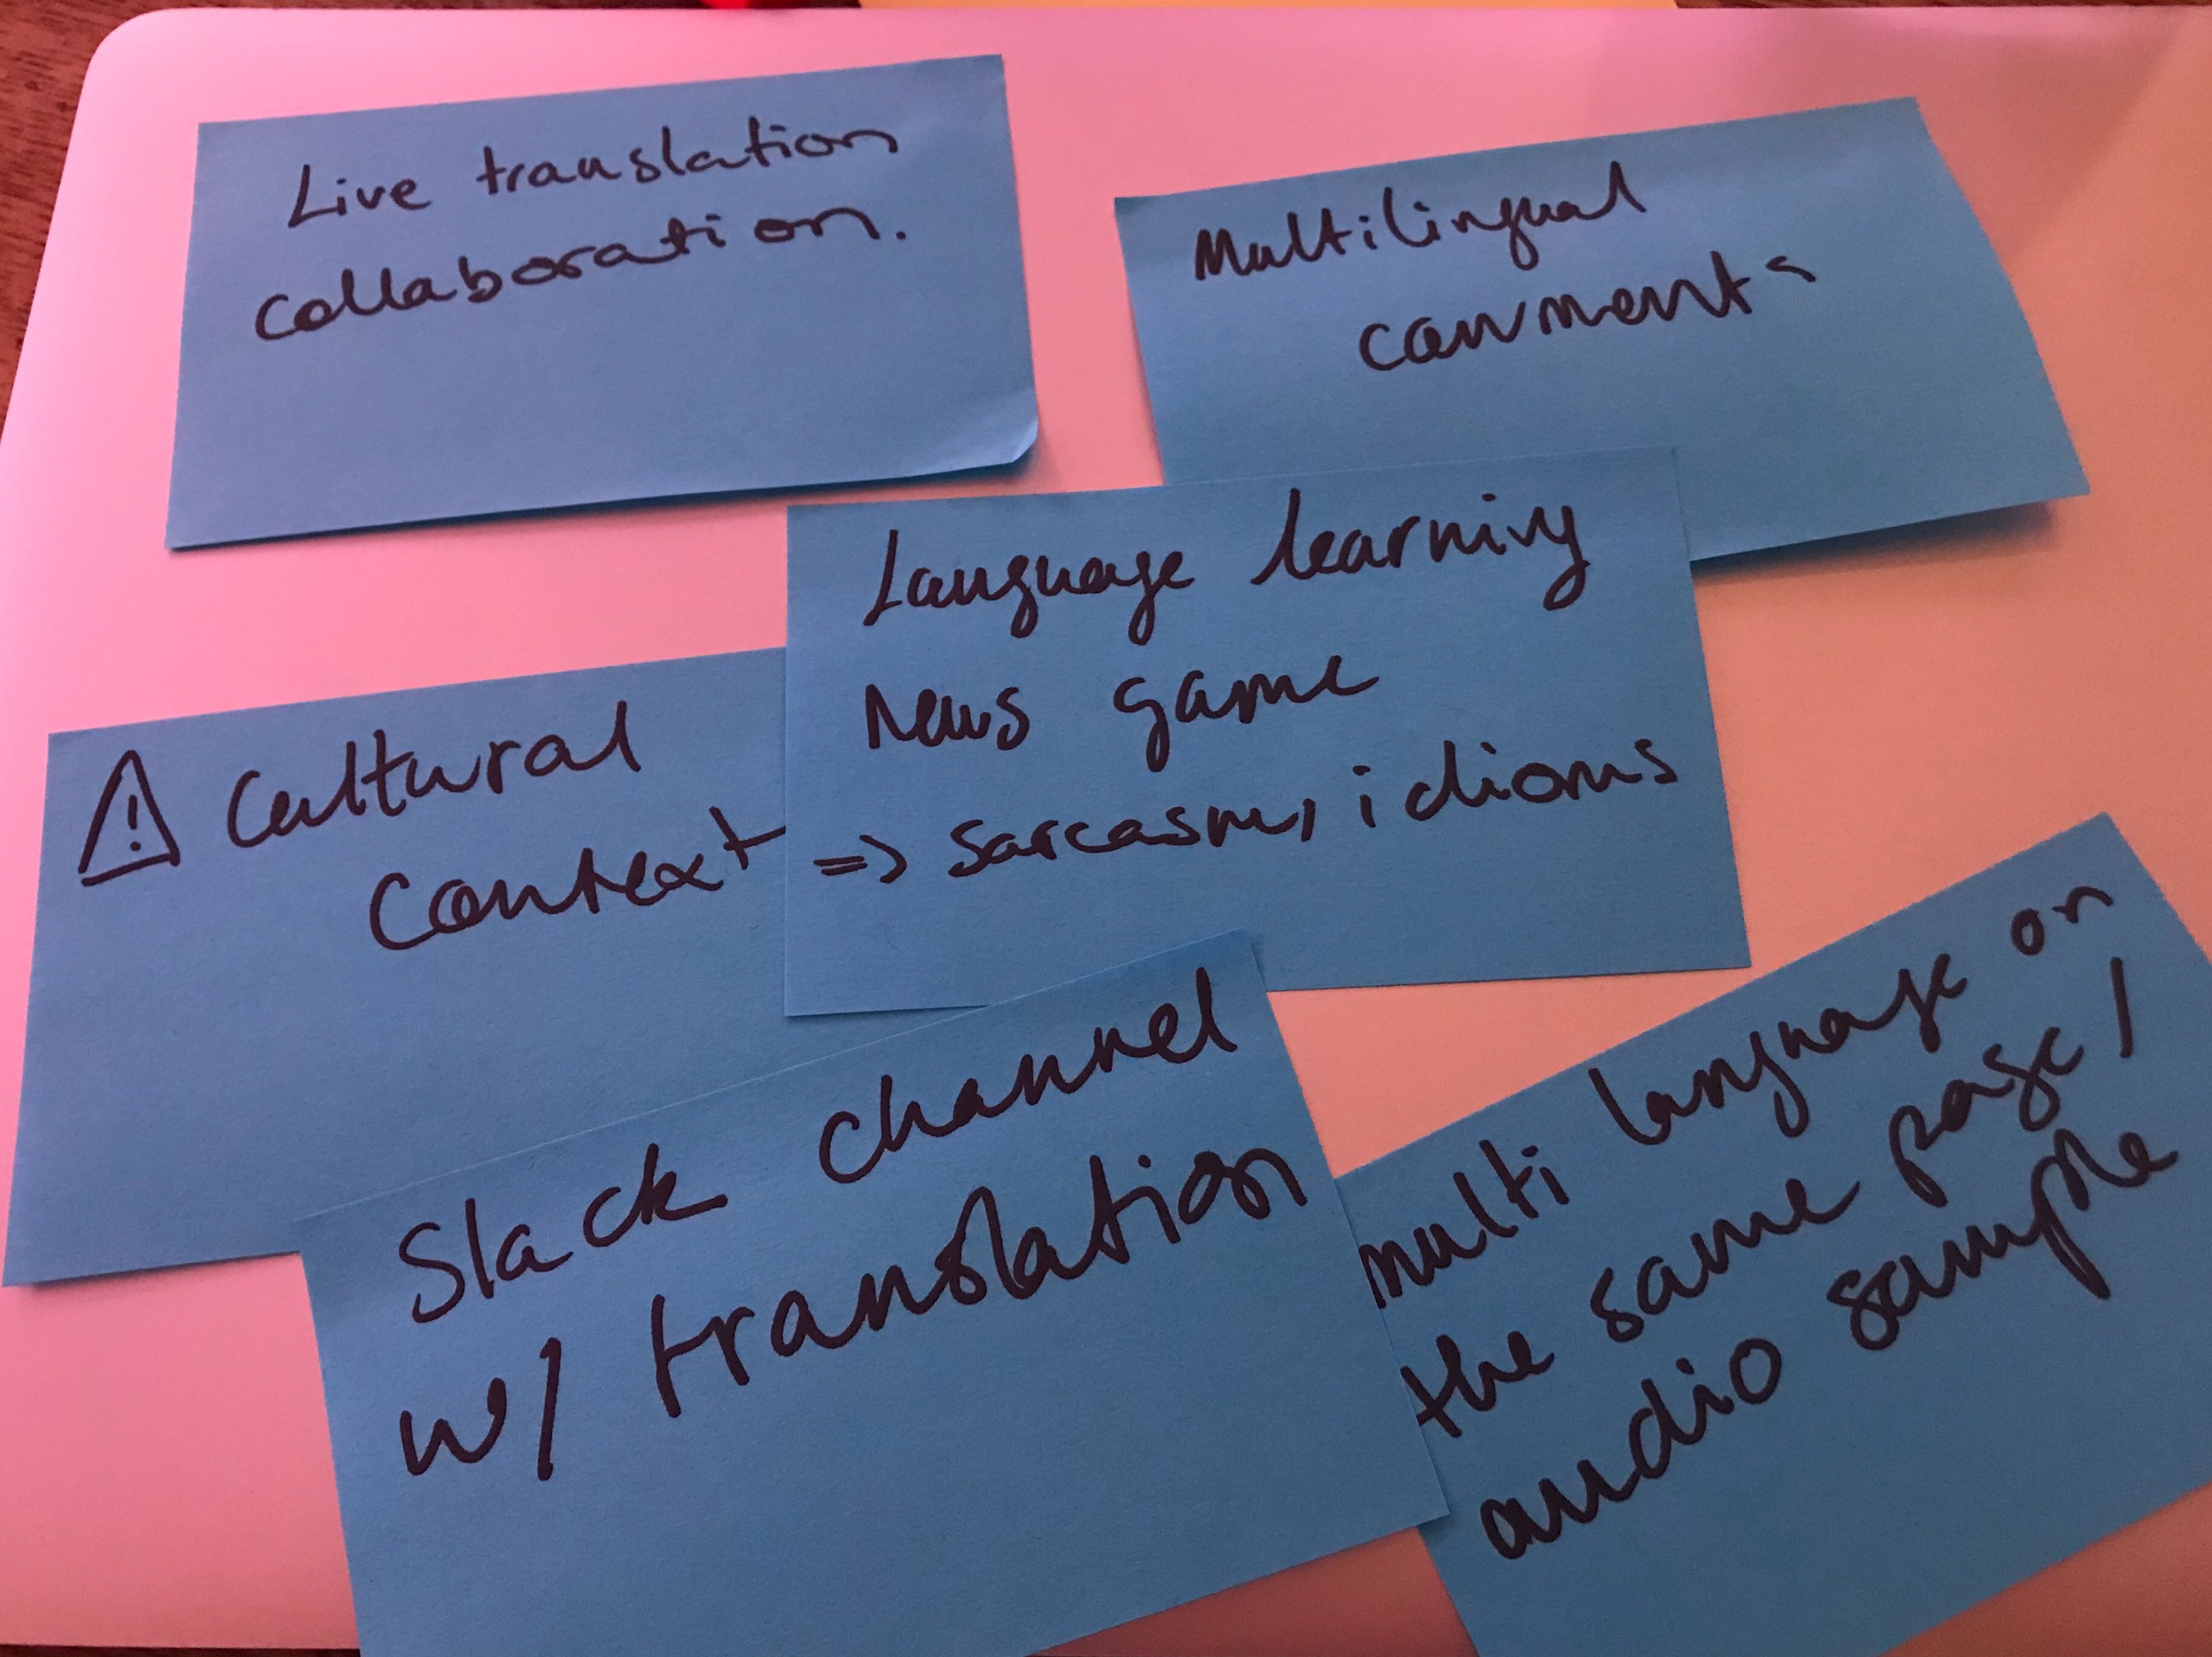 Live translation
collaboration.
Multilingual
comments
Language learning
News game
=> sarcasm, idioms
⚠ Cultural
Context
Slack channel
w/ translation
multi language on
the same page /
audio sample